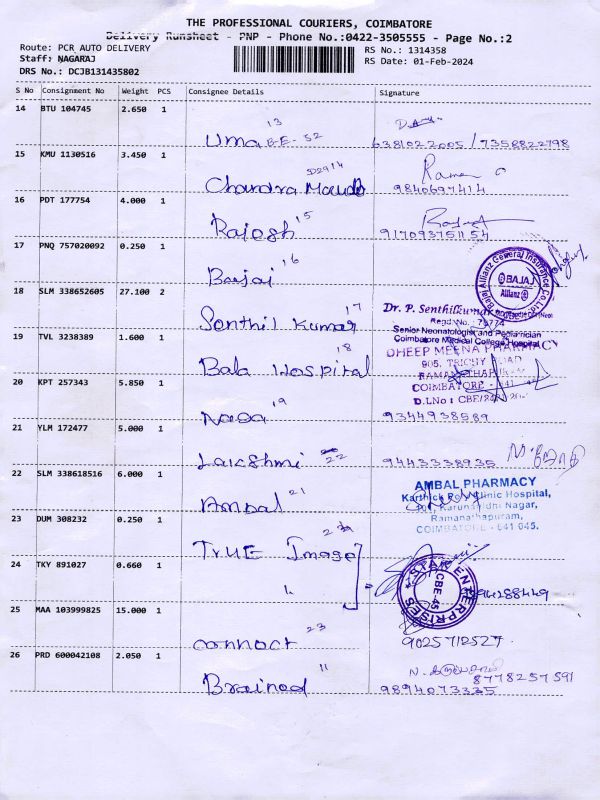 THE PROFESSIONAL COURIERS, COIMBATORE
Delivery Runsheet - PNP - Phone No.:0422-3505555 - Page No.:2
Route: PCR AUTO DELIVERY
RS No.: 1314358
Staff: NAGARAJ
RS Date: 01-Feb-2024
DRS No.: DCJB131435802
S No Consignment No Weight PCS Consignee Details Signature
14 BTU 104745 2.650 1
13
Uma BE-52 6381022005 / 7358822798
15 KMU 1130516 3.450 1
14
Chandra 9840697414
16 PDT 177754 4.000 1
15
Rajesh 917093751154
17 PNQ 757020092 0.250 1
16
Bajaj
Bajaj Allianz General Insurance Co.Ltd
BAJAJ
Allianz
18 SLM 338652605 27.100 2
17
Senthil Kumar
Dr. P. Senthilkumar
Regd No.: 75774
Senior Neonatologist and Pediatrician
Coimbatore Medical College Hospital
19 TVL 3238389 1.600 1
18
Bala Hospital
DHEEP MEENA PHARMACY
905, TRICHY ROAD
RAMANATHAPURAM
COIMBATORE - 641
D.LNo : CBE
20 KPT 257343 5.850 1
19
Naga 9344938589
21 YLM 172477 5.000 1
22
Lakshmi 9443338935
22 SLM 338618516 6.000 1
21
Ambal
AMBAL PHARMACY
Karthick Poly Clinic Hospital,
Karunanidhi Nagar,
Ramanathapuram,
COIMBATORE - 641 045.
23 DUM 308232 0.250 1
True Image
24 TKY 891027 0.660 1
STAR ENTERPRISES
CBE-45
25 MAA 103999825 15.000 1
23
connect 9025712527
26 PRD 600042108 2.050 1
11
Brained 8778257591
9894073335